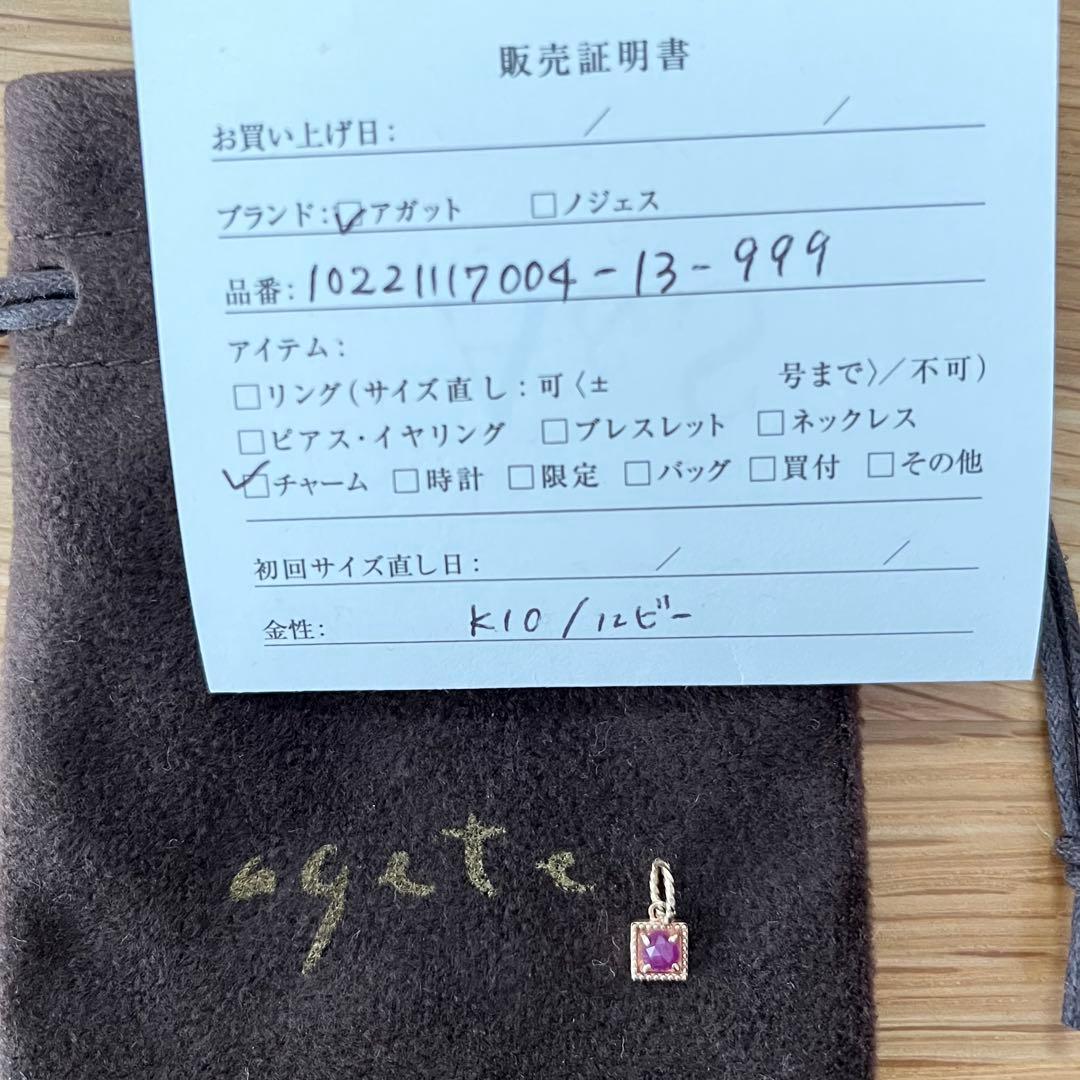 販売証明書
お買い上げ日: / /
ブランド: □アガット □ノジェス
品番: 10221117004-13-999
アイテム:
□リング(サイズ直し:可〈± 号まで〉/不可)
□ピアス・イヤリング □ブレスレット □ネックレス
□チャーム □時計 □限定 □バッグ □買付 □その他
初回サイズ直し日: / /
金性: K10/ルビー
agete